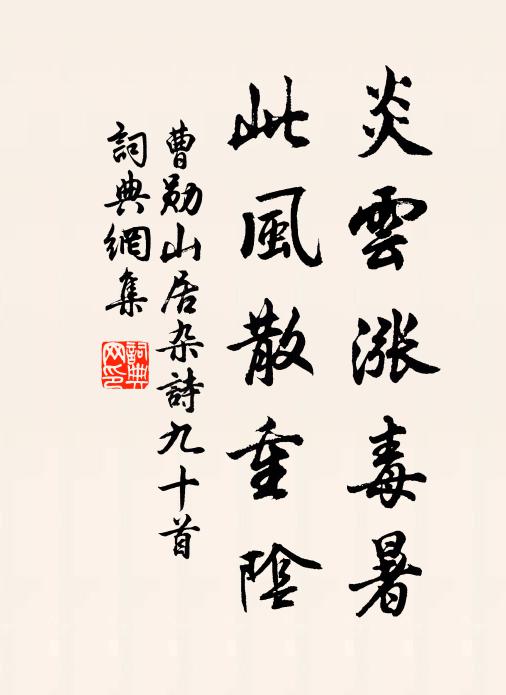 炎雲漲毒暑
此風散重陰
曹勛山居杂詩九十首
詞典網集
詞典網印